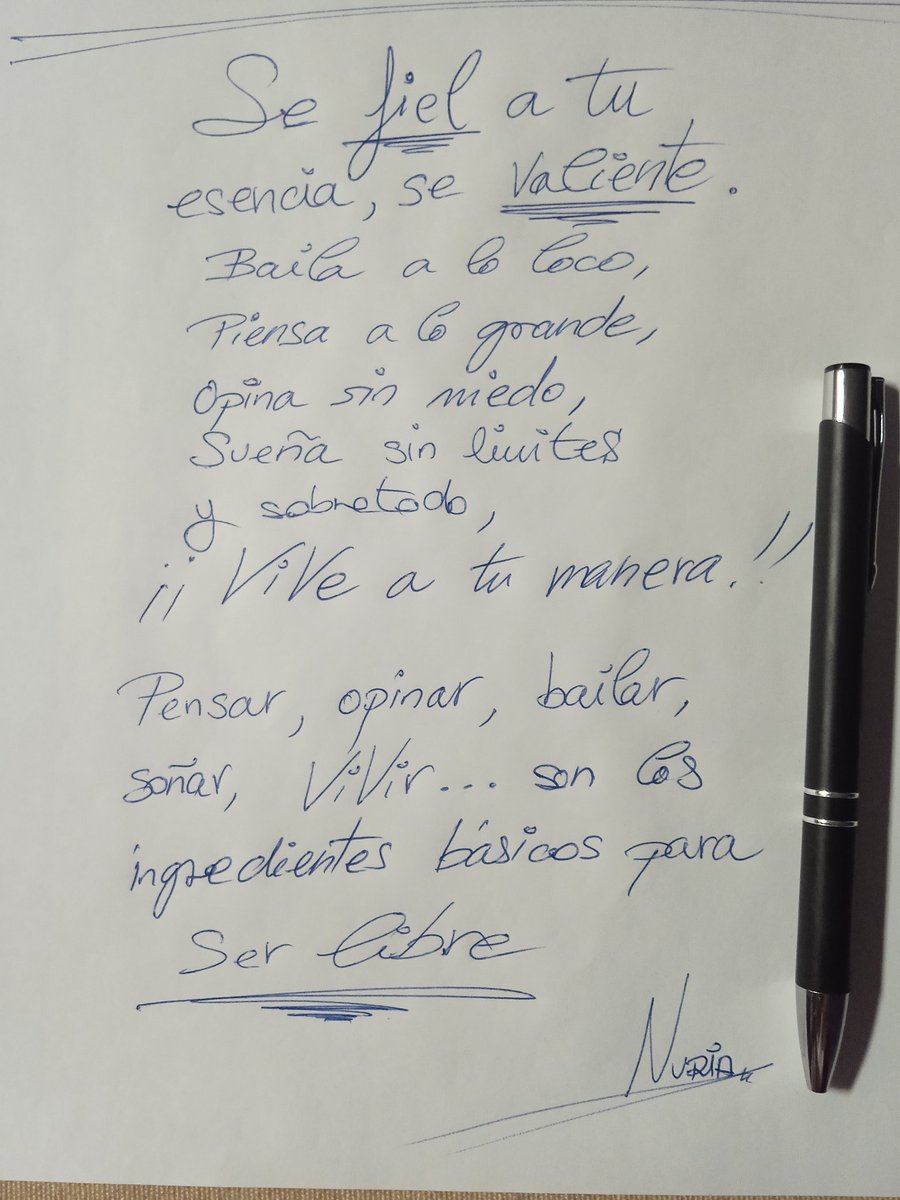 Se fiel a tu
esencia, se valiente.
Baila a lo loco,
Piensa a lo grande,
Opina sin miedo,
Sueña sin limites
y sobretodo,
¡¡ ViVe a tu manera.!!
Pensar, opinar, bailar,
soñar, ViVir... son los
ingredientes básicos para
Ser libre
NURIA